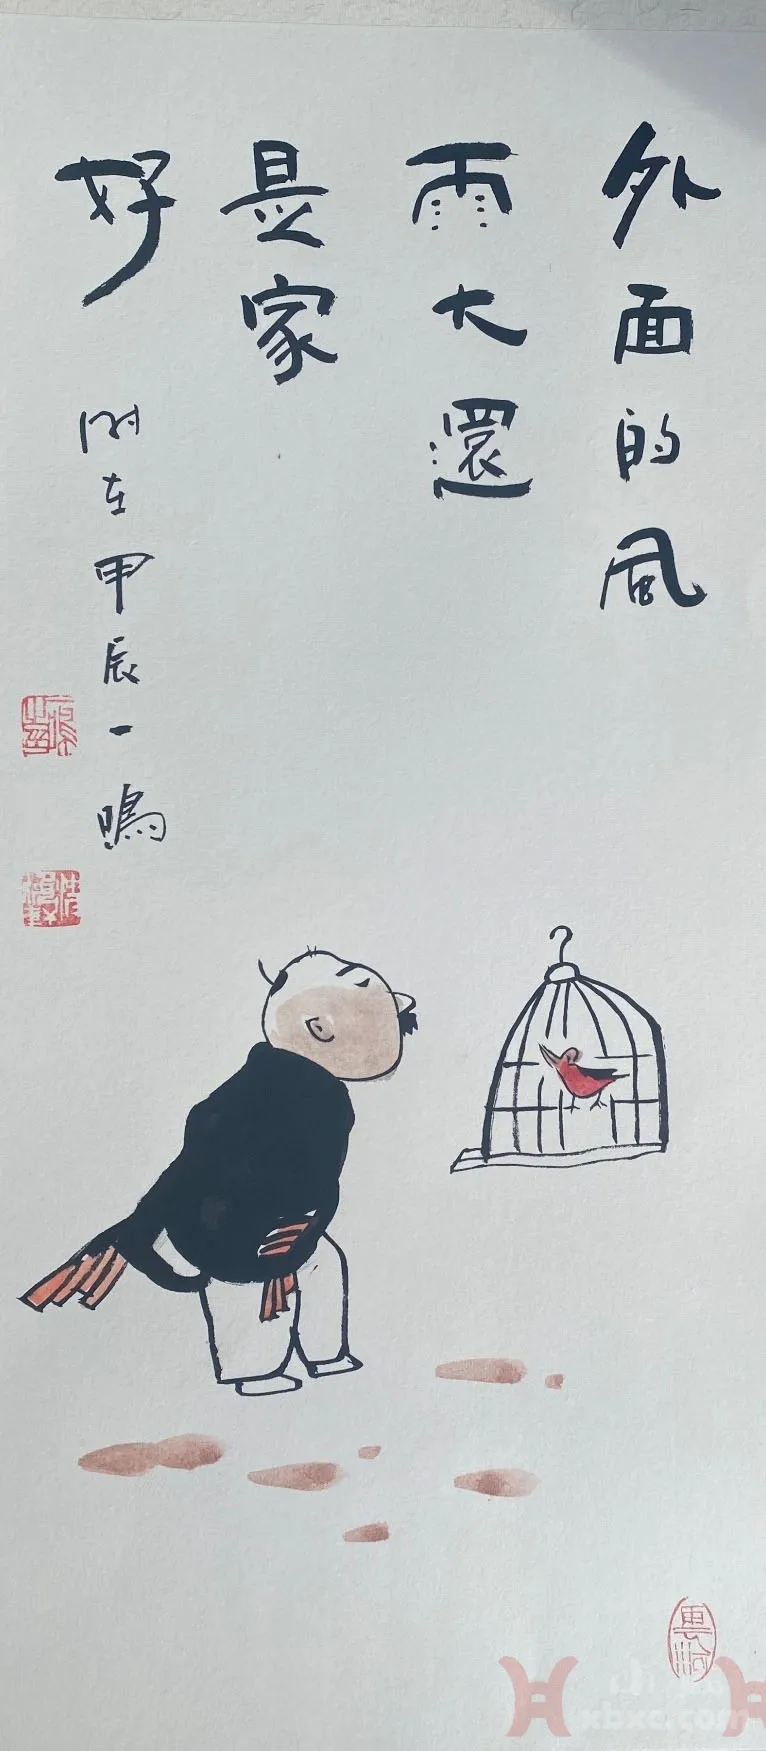 外面的风
雨大還
是家
好
时在甲辰一鳴
xbxc.com